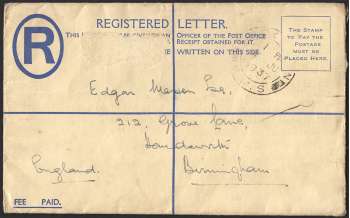 REGISTERED LETTER.
R
THIS
OFFICER OF THE POST OFFICE
RECEIPT OBTAINED FOR IT.
BE WRITTEN ON THIS SIDE.
THE STAMP
TO PAY THE
POSTAGE
MUST BE
PLACED HERE.
Edgar Esq.,
212, Grove Lane,
Handsworth
Birmingham
England.
FEE PAID.